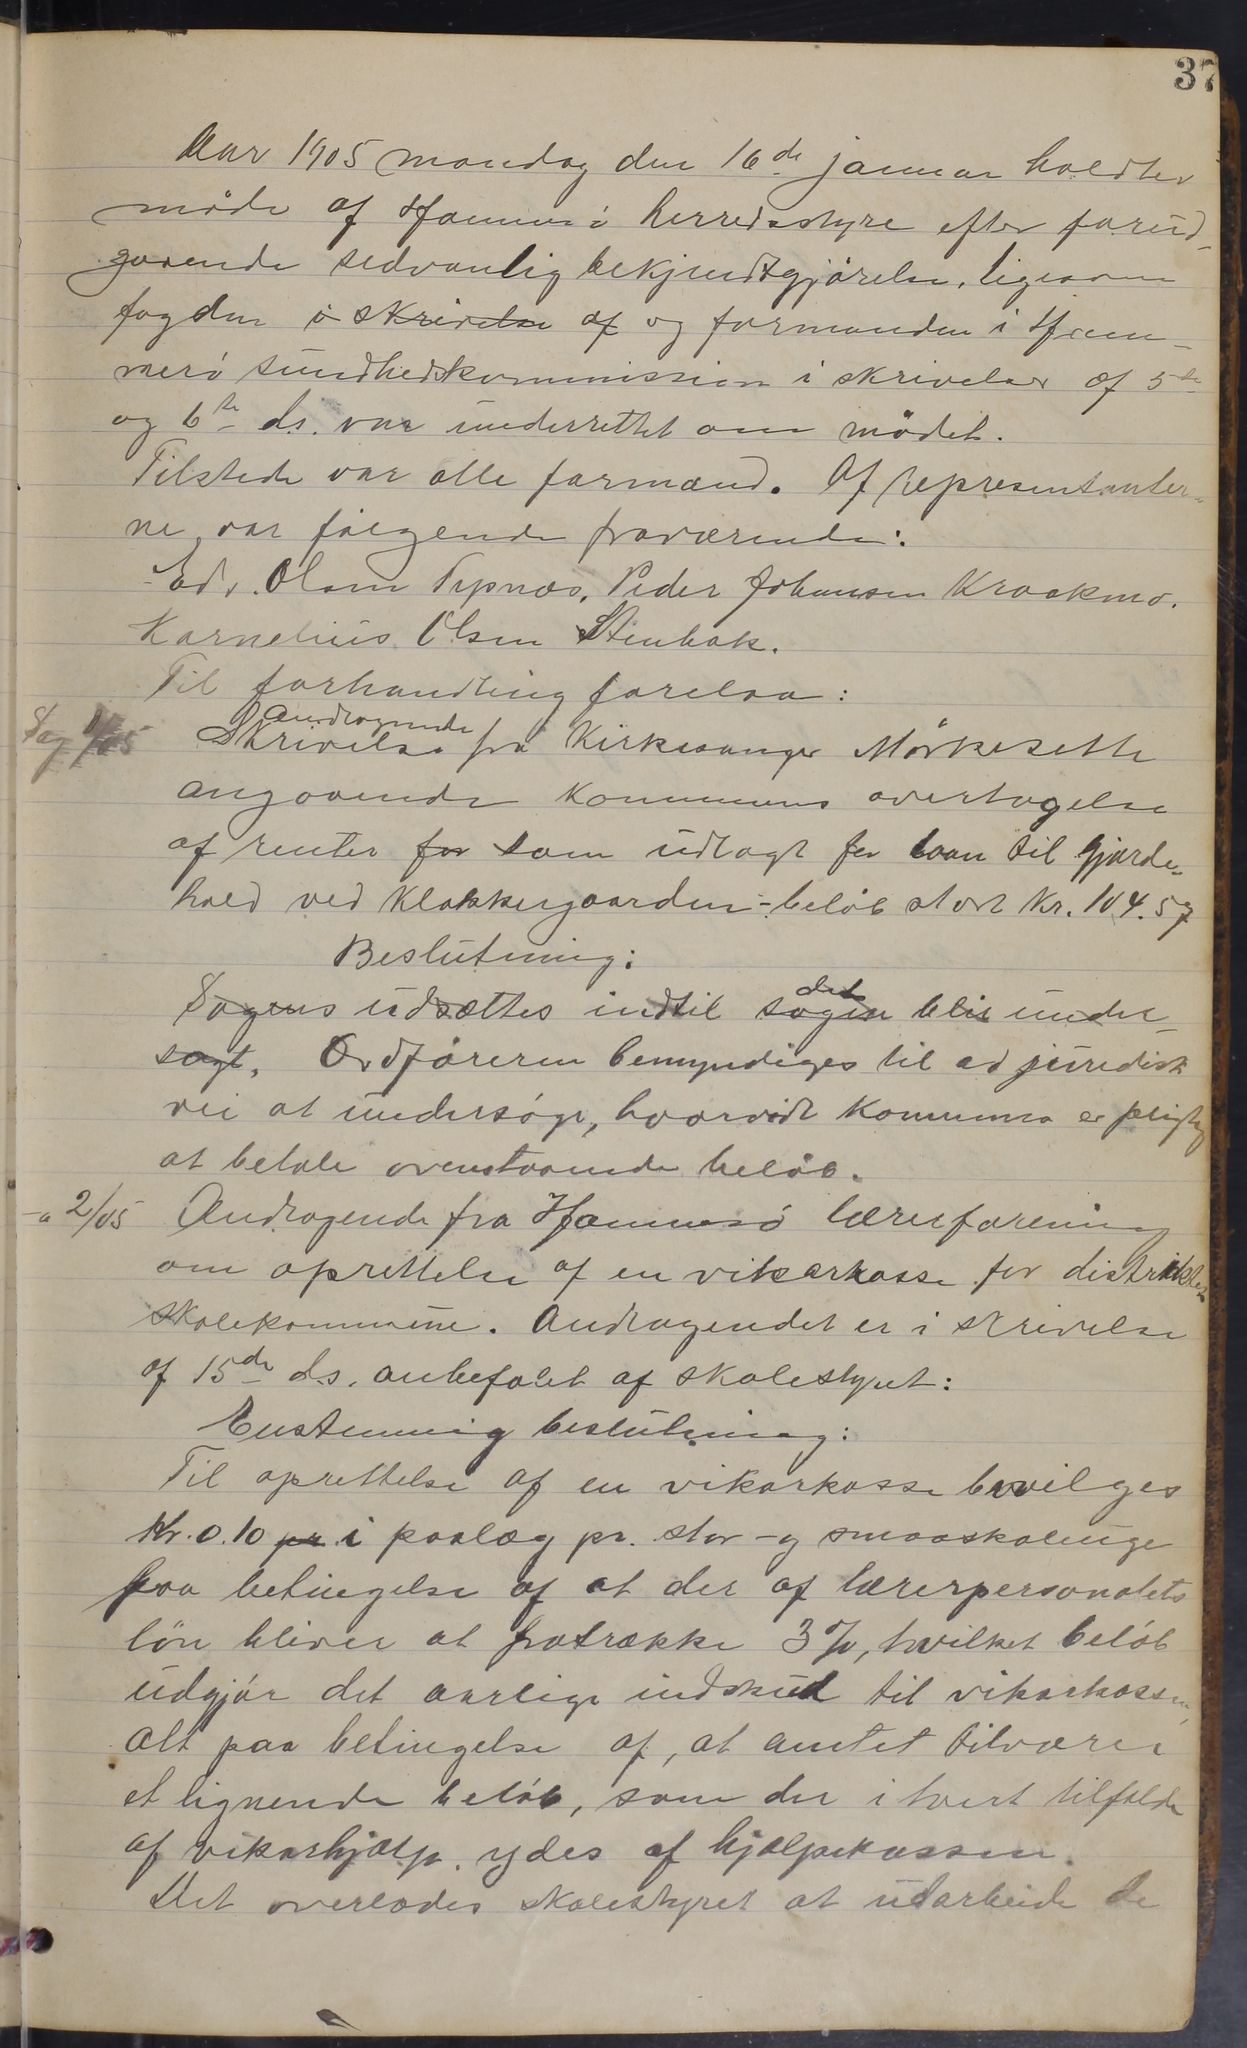 37
Aar 1905 mandag den 16de januar holdtes
møde af Hammerø herredsstyre efter forud-
gaaende sedvanlig bekjendtgjørelse, ligesom
fogden i skrivelse af og formanden i Ham-
merø sundhedskommission i skrivelser af 5te
og 6te ds. var underrettet om mødet.
Tilstede var alle formænd. Af repræsentanter-
ne var følgende fraværende:
Edv. Olsen Tepnæs, Peder Johansen Kraakmo.
Kornelius Olsen Stenbak.
Til forhandling forelaa:
Sag 1/05
Andragende
Skrivelse fra Kirkesanger Mørkesette
angaaende kommunens overtagelse
af renter for som udlagt for laan til gjærde-
hold ved Klokkergaarden - beløb stort Kr. 104.57
Beslutning:
Sagens udsættes indtil sagen det blir under-
søgt. Ordføreren bemyndiges til ad juridisk
vei at undersøge, hvorvidt kommunen er pligtig
at betale ovenstaaende beløb.
-"- 2/05 Andragende fra Hammerø lærerforening
om oprettelse af en vikarkasse for distriktets
skolekommune. Andragendet er i skrivelse
af 15de ds. anbefalet af skolestyret:
Enstemmig beslutning:
Til oprettelse af en vikarkasse bevilges
Kr. 0.10 pr i paalæg pr. stor- og smaaskoleuge
paa betingelse af at der af lærerpersonalets
løn bliver at fratrække 3 %, hvilket beløb
udgjør det aarlige indskud til vikarkassen,
alt paa betingelse af, at amtet tilfører
et lignende beløb, som der i hvert tilfælde
af vikarhjælp ydes af hjælpekassen.
Det overlades skolestyret at udarbeide de